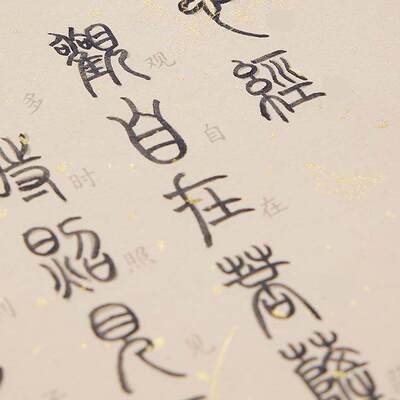 經
觀自在菩薩
观自在
時照見
多时照见